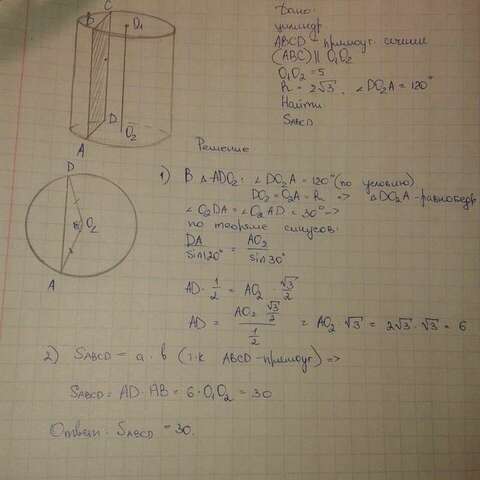 B C O₁
D
A O₂
Дано:
цилиндр
ABCD - прямоуг. сечение
(ABC) || O₁O₂
O₁O₂ = 5
R = 2√3, ∠DO₂A = 120°
Найти
S_ABCD
Решение
D
O₂
A
1) В △ADO₂: ∠DO₂A = 120° (по условию)
DO₂ = O₂A = R => △DO₂A - равнобедр
∠O₂DA = ∠O₂AD = 30° ->
по теореме синусов:
DA/sin120° = AO₂/sin30°
AD · 1/2 = AO₂ · √3/2
AD = (AO₂ · √3/2)/(1/2) = AO₂ · √3 = 2√3 · √3 = 6
2) S_ABCD = a · b (т.к ABCD - прямоуг) =>
S_ABCD = AD · AB = 6 · O₁O₂ = 30
Ответ: S_ABCD = 30.